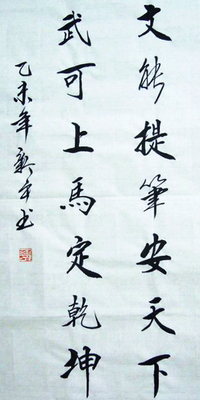 文能提筆安天下
武可上馬定乾坤
乙未年新年书